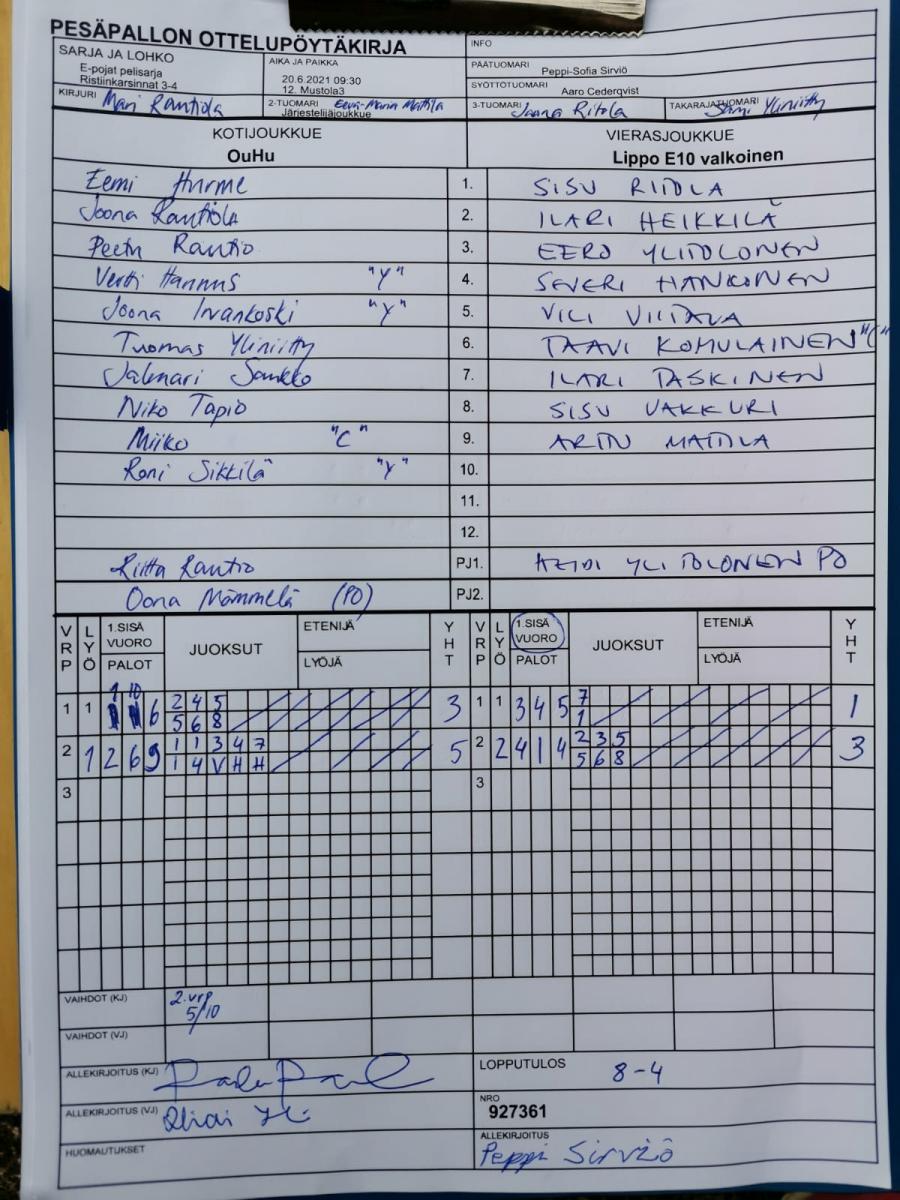 PESÄPALLON OTTELUPÖYTÄKIRJA
SARJA JA LOHKO
E-pojat pelisarja
Ristiinkarsinnat 3-4
AIKA JA PAIKKA
20.6.2021 09:30
12. Mustola3
INFO
PÄÄTUOMARI Peppi-Sofia Sirviö
SYÖTTÖTUOMARI Aaro Cederqvist
KIRJURI Mari Rautiola
2-TUOMARI Eeva-Maria Mattila
Järjestelijäjoukkue
3-TUOMARI Jaana Ritola
TAKARAJATUOMARI Yliniitty
KOTIJOUKKUE
OuHu
VIERASJOUKKUE
Lippo E10 valkoinen
Eemi Hurme 1. SISU RITOLA
Joona Rautiola 2. ILARI HEIKKILÄ
Peetu Rautio 3. EERO YLITOLONEN
Vertti Hannus "Y" 4. SEVERI HANKONEN
Joona Irvankoski "Y" 5. VILI VIITALA
Tuomas Yliniitty 6. TAAVI KOMULAINEN "C"
Jalmari Saukko 7. ILARI TASKINEN
Niko Tapio 8. SISU VAKKURI
Miiko "C" 9. ARTTU MATTILA
Roni Sikkilä "Y" 10.
11.
12.
Riitta Rautio PJ1. HEIDI YLITOLONEN PO
Oona Mämmelä (PO) PJ2.
VRP LYÖ 1.SISÄ VUORO PALOT JUOKSUT ETENIJÄ LYÖJÄ YHT VRP LYÖ 1.SISÄ VUORO PALOT JUOKSUT ETENIJÄ LYÖJÄ YHT
1 1 1 10 6 2 4 5 3 1 1 3 4 5 7 1
5 6 8 1
2 1 2 6 9 1 1 3 4 7 5 2 2 4 1 4 2 3 5 3
1 4 V H H 5 6 8
3 3
VAIHDOT (KJ) 2.vrp
5/10
VAIHDOT (VJ)
ALLEKIRJOITUS (KJ)
LOPPUTULOS 8-4
ALLEKIRJOITUS (VJ)
NRO
927361
HUOMAUTUKSET
ALLEKIRJOITUS
Peppi Sirviö